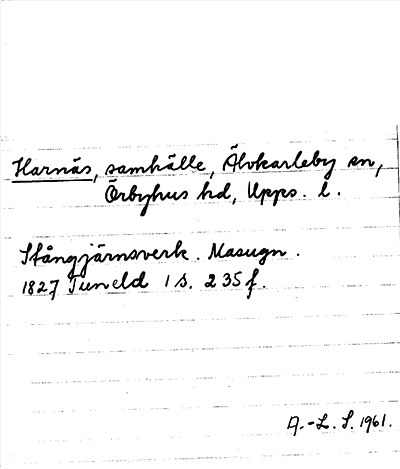 Harnäs, samhälle, Älvkarleby sn,
Örbyhus hd, Upps. l.
Stångjärnsverk. Masugn.
1827 Tuneld 1 s. 235 f.
A.-L. S. 1961.